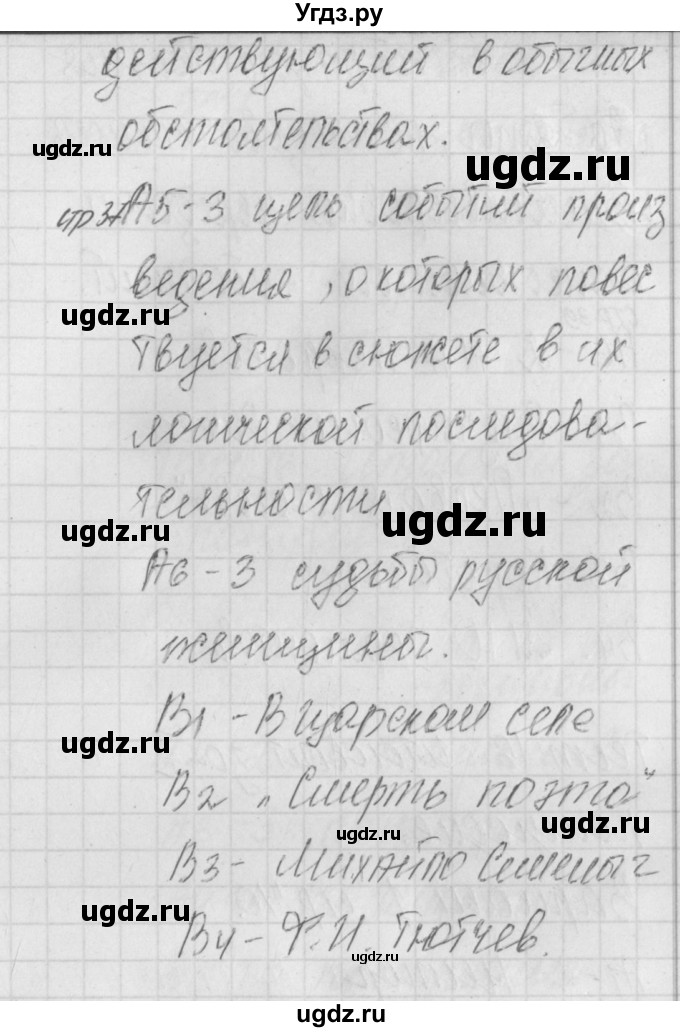 Угдз.ру
действующий в обычных
ugdz.ru
обстоятельствах.
ugdz.ru
стр 37 А5-3 цепь событий произ
ведения, о которых повес
ugdz.ru
ugdz.ru
твуется в сюжете в их
логической последова-
тельности
ugdz.ru
ugdz.ru
А6-3 судьбы русской
женщины.
В1 - В царском селе
ugdz.ru
В2 „Смерть поэта"
ugdz.ru
ugdz.ru
В3- Михайло Семеныч
В4- Ф.И. Тютчев.
ugdz.ru
ugdz.ru
ugdz.ru